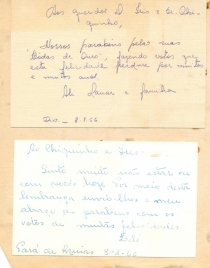 Aos queridos D. Iris e Sr. Chi-
quinho,
"Nossos parabéns pelas suas
Bodas de Ouro", fazendo votos que
esta felicidade perdure por muitos
e muitos anos.
e família
Rio - 8-1-66
Ao Chiquinho e Iris:
Sinto muito não estar
com vocês hoje por meio desta
lembrança envio-lhes o meu
abraço de parabens com os
votos de muitas felicidades
Pará de Minas 8-1-66